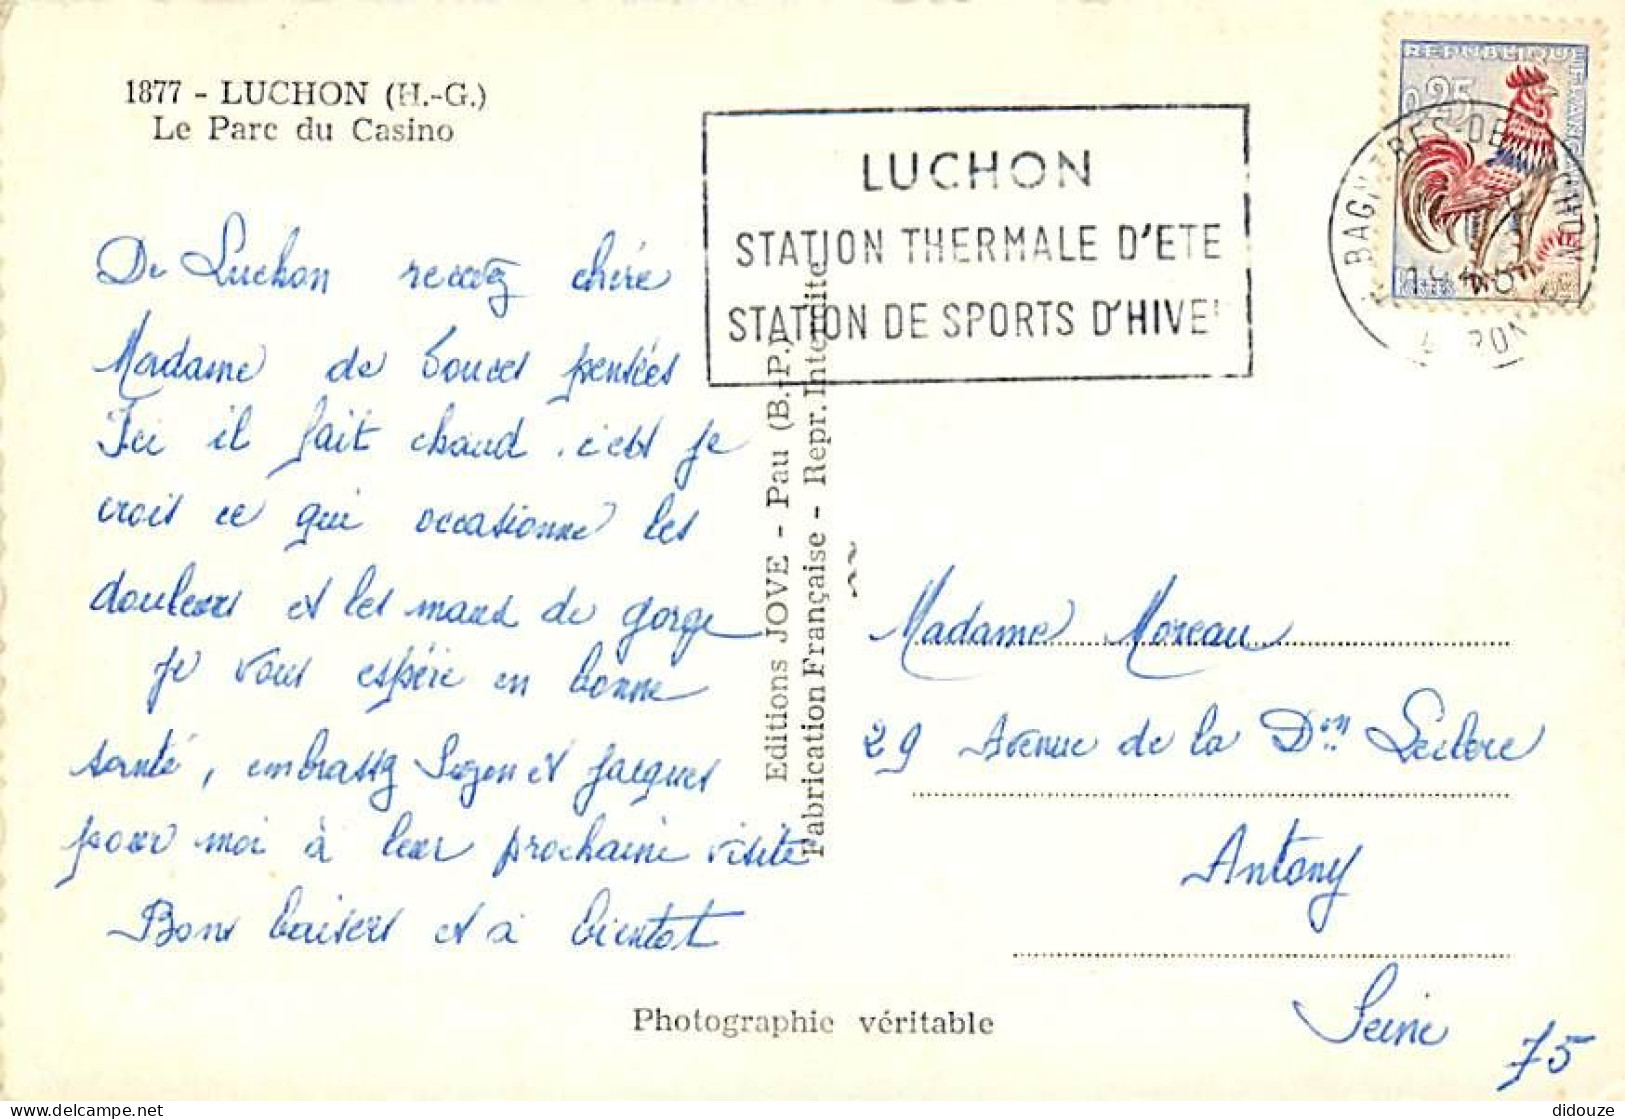 1877 - LUCHON (H.-G.)
Le Parc du Casino
De Luchon recevez chère
Madame de douces pensées
Ici il fait chaud. c'est je
crois ce qui occasionne les
douleurs et les maux de gorge
je vous espère en bonne
santé, embrassez Suzon et Jacques
pour moi à leur prochaine visite
Bons baisers et à bientot
Editions JOVE - Pau (B.-P.)
Fabrication Française - Repr. Interdite
LUCHON
STATION THERMALE D'ETE
STATION DE SPORTS D'HIVE
REPUBLIQUE FRANCAISE
0,25
BAGNERES-DE-LUCHON
Madame Moreau
29 Avenue de la Don Leclerc
Antony
Seine 75
Photographie véritable
delcampe.net
didouze